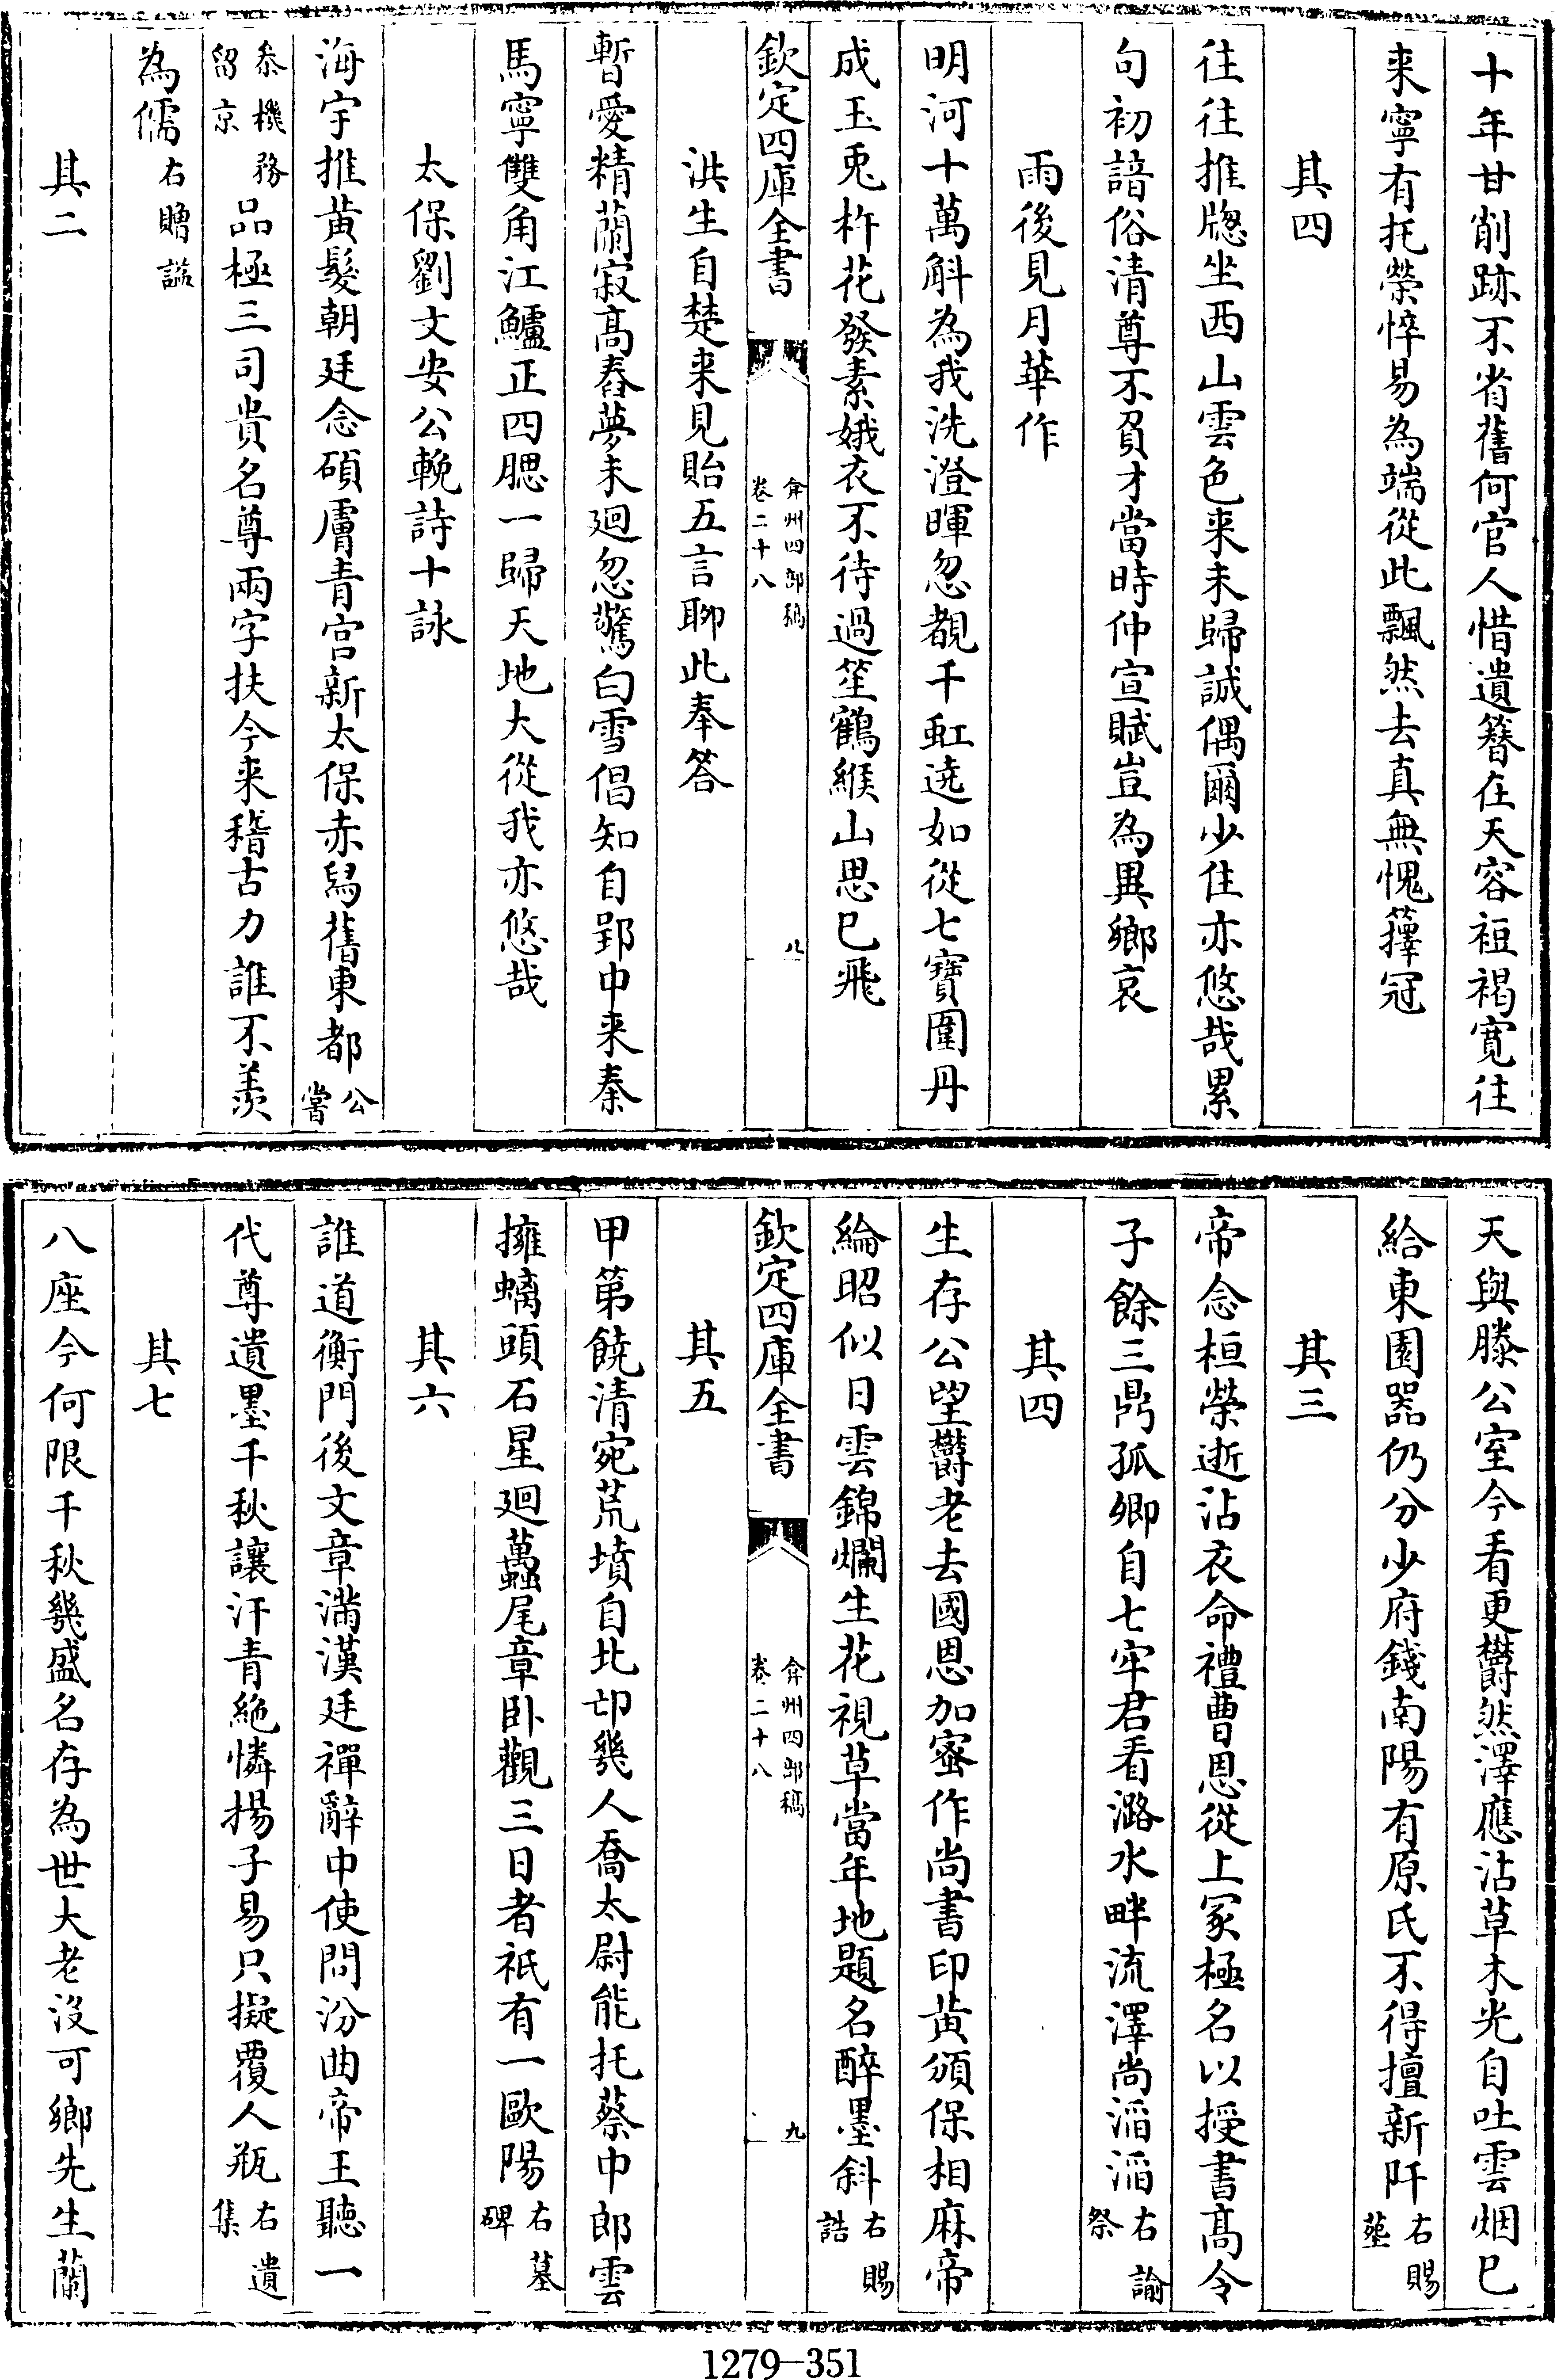 十年甘削跡不省舊何官人惜遺簮在天容裋褐寛往
来寧有托榮悴易為端從此飄然去真無愧籜冠
其四
往往推牎坐西山雲色来未歸誠偶爾少住亦悠哉累
句初諳俗清尊不負才當時仲宣賦豈為異鄉哀
雨後見月華作
明河十萬斛為我洗澄暉忽覩千虹遶如從七寶圍丹
成玉兎杵花發素娥衣不待過笙鶴緱山思已飛
欽定四庫全書
弇州四部稿
卷二十八
八
洪生自楚来見貽五言聊此奉答
暫愛精蘭寂高舂夢未廻忽驚白雪倡知自郢中来秦
馬寧雙角江鱸正四腮一歸天地大從我亦悠哉
太保劉文安公輓詩十詠
海宇推黄髮朝廷念碩膚青宫新太保赤舄舊東都公嘗
叅機務留京品極三司貴名尊兩字扶今来稽古力誰不羨
為儒右贈諡
其二
天與滕公室今看更鬱然澤應沾草木光自吐雲烟已
給東園器仍分少府錢南陽有原氏不得擅新阡右賜塋
其三
帝念桓榮逝沾衣命禮曹恩從上冢極名以授書高令
子餘三鼎孤卿自七牢君看潞水畔流澤尚滔滔右諭祭
其四
生存公望鬱老去國恩加蜜作尚書印黄頒保相麻帝
綸昭似日雲錦爛生花視草當年地題名醉墨斜右賜誥
欽定四庫全書
弇州四部稿
卷二十八
九
其五
甲第饒清宛荒墳自北邙幾人喬太尉能托蔡中郎雲
擁螭頭石星廻蠆尾章卧觀三日者祇有一歐陽右墓碑
其六
誰道衡門後文章滿漢廷禪辭中使問汾曲帝王聽一
代尊遺墨千秋讓汗青絶憐揚子易只擬覆人瓶右遺集
其七
八座今何限千秋幾盛名存為世大老沒可鄉先生蘭
1279—351